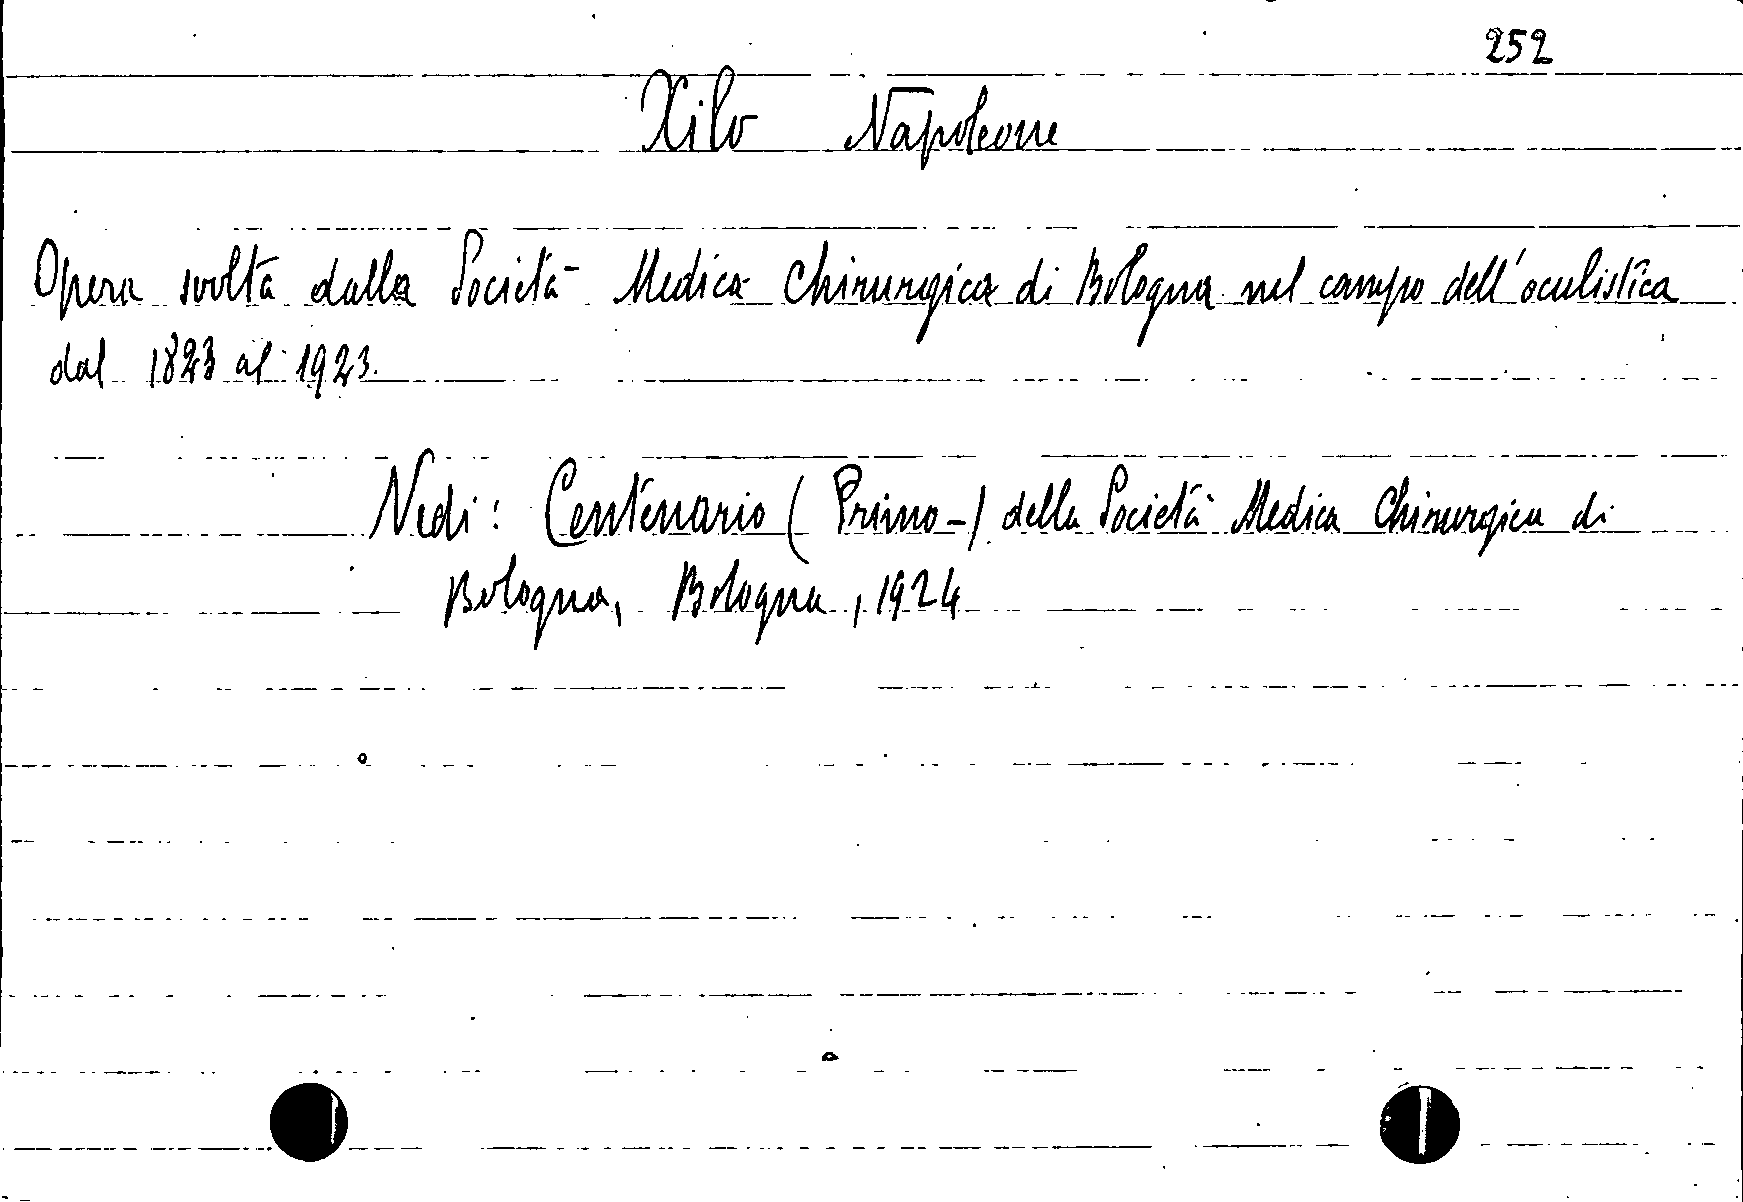 252
Xilo Napoleone
Opera svolta dalla Società Medica Chirurgica di Bologna nel campo dell'oculistica
dal 1823 al 1923.
Vedi: Centenario (Primo-) della Società Medica Chirurgica di
Bologna, Bologna, 1924